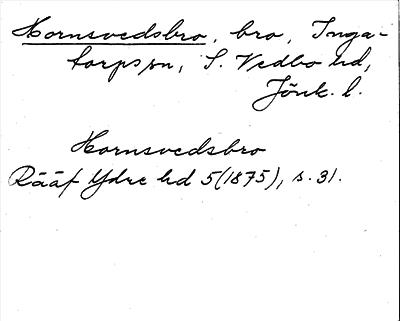 Hornsvedsbro, bro, Inga-
torps sn, S. Vedbo hd,
Jönk. l.
Hornsvedsbro
Rääf Ydre hd 5(1875), s. 31.